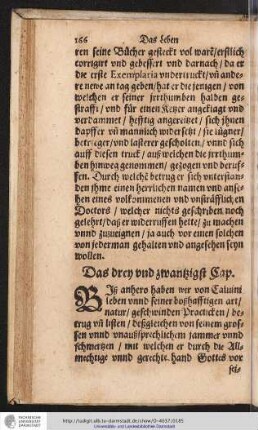 166 Das Leben
ren seine Bücher gesteckt vol ward/ erstlich
corrigirt vnd gebessert vnd darnach / da er
die erste Exemplaria vndertruckt / vñ ande-
re newe an tag geben / hat er die jenigen / von
welchen er seiner jrrthumben halben ge-
strafft / vnd für einen Ketzer angeklagt vnd
verdammet / hefftig angereitzet / sich jhnen
dapffer vñ mannlich widersetzt / sie lügner /
betrieger / vnd lästerer gescholten / vnnd sich
auff diesen truck / auß welchen die jrrthum-
ben hinweg genommen / gezogen vnd beruf-
fen. Durch welchē betrug er sich vnterstan-
den jhme einen herrlichen namen vnd anse-
hen eines volkommenen vnd vnsträfflichen
Doctors / welcher nichts geschrieben noch
gelehrt / daß er widerruffen hette / zu machen
vnnd zuzueignen / ja auch vor einen solchen
von jederman gehalten vnd angesehen seyn
wollen.
Das drey vnd zwantzigst Cap.
Biß anhero haben wir von Caluini
leben vnnd seiner boßhafftigen art /
natur / geschwinden Practicken / be-
trug vñ listen / deßgleichen von seinem gros-
sen vnnd vnaussprechlichem jammer vnnd
schmertzen / mit welchen er durch die All-
mechtige vnnd gerechte hand Gottes vor
sei-
http://tudigit.ulb.tu-darmstadt.de/show/O-4637/0185
Universitäts- und Landesbibliothek Darmstadt